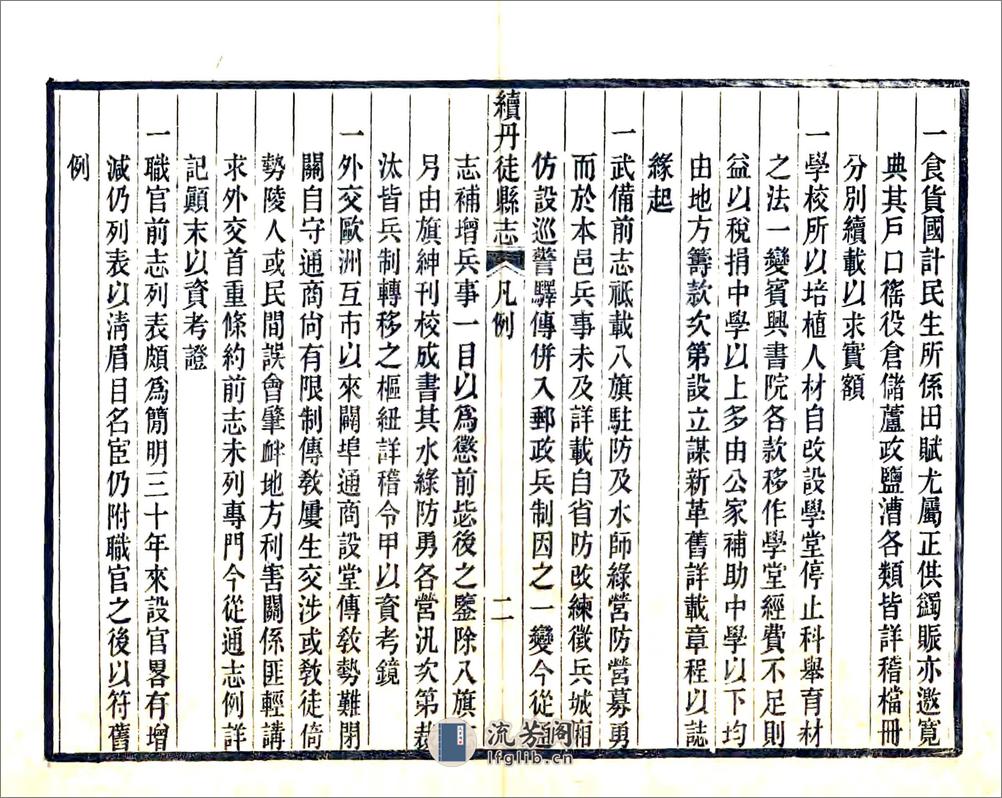 一食貨國計民生所係田賦尤屬正供蠲賑亦邀寬
典其戶口徭役倉儲蘆政鹽漕各類皆詳稽檔冊
分別續載以求實額
一學校所以培植人材自改設學堂停止科舉育材
之法一變賓興書院各款移作學堂經費不足則
益以稅捐中學以上多由公家補助中學以下均
由地方籌款次第設立謀新革舊詳載章程以誌
緣起
一武備前志祗載八旗駐防及水師綠營防營募勇
而於本邑兵事未及詳載自省防改練徵兵城廂
仿設巡警驛傳併入郵政兵制因之一變今從
續丹徒縣志 凡例 二
志補增兵事一目以為懲前毖後之鑒除八旗
另由旗紳刊校成書其水綠防勇各營汛次第裁
汰皆兵制轉移之樞紐詳稽令甲以資考鏡
一外交歐洲互市以來闢埠通商設堂傳敎勢難閉
關自守通商尚有限制傳敎屢生交涉或敎徒倚
勢陵人或民間誤會肇衅地方利害關係匪輕講
求外交首重條約前志未列專門今從通志例詳
記顚末以資考證
一職官前志列表頗為簡明三十年來設官畧有增
減仍列表以淸眉目名宦仍附職官之後以符舊
例
流芳阁
lfglib.cn